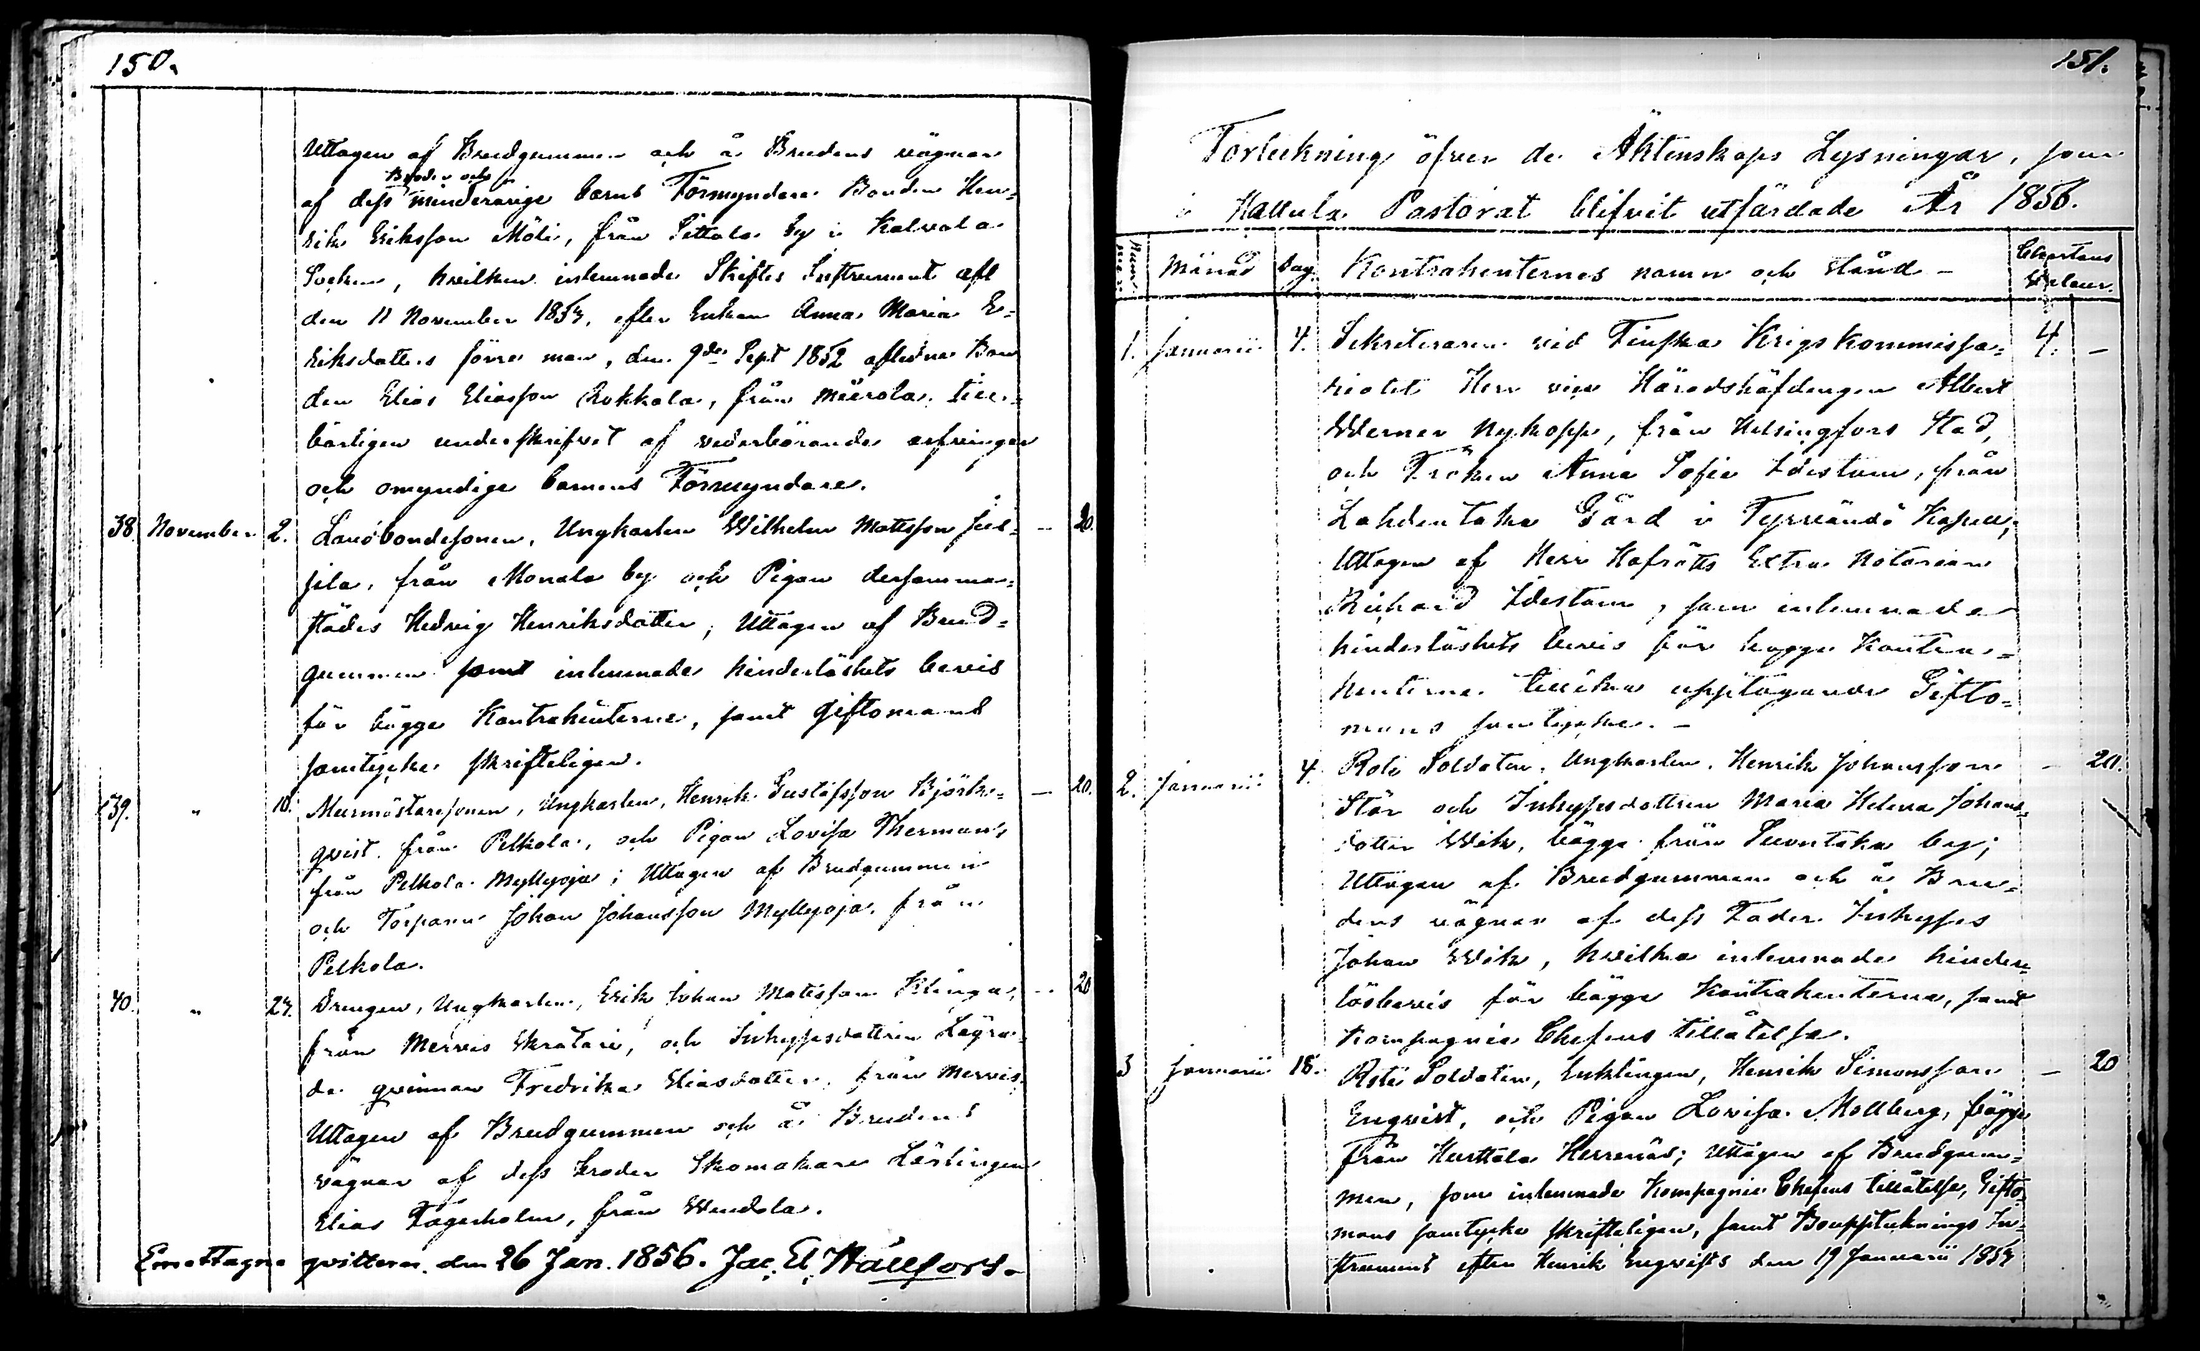 150.
Uttagen af Brudgummen och å Brudens vägnar
Broder och
af dess minderårige barns Förmyndare Bonden Hen=
rik Eriksson Möli, från Pittola by i Kalvola
Socken, hvilken inlemnade Skiftes Instrument af
den 11 November 1854, efter Enkan Anna Maria E=
riksdotters förre man, den 9de Sept 1852 aflidne Bon
den Elias Eliasson Rokkola, från Miērola, till=
börligen underskrifvet af vederbörande arfvingar
och omyndige barnens Förmyndare.
38. November 2. Bondesonen, Ungkarlen Wilhelm Mattsson
från Monala by och Pigan dersamma=
städes Hedvig Henriksdotter; Uttagen af Brud=
gummen samt inlemnade hinderlöshets bevis
för bägge Kontrahenterne, samt giftomans
samtycke skrifteligen. — 20.
139. " 10. Murmästaresonen, Ungkarlen, Henrik Gustafsson Björk=
qvist från Pelkola, och Pigan Lovisa Therman
från Pelkola Myllyoja; Uttagen af Brudgummen
och Torparen Johan Johansson Myllyoja, från
Pelkola. — 20.
40. " 24. Drengen, Ungkarlen, Erik Johan Mattsson Klinga,
från Mervis, och Inhysesdottren Lägra=
de qvinnan Fredrika Eliasdotter, från Mervis;
Uttagen af Brudgummen och å Brudens
vägnar af dess broder Skomakare Lärlingen
Elias Fagerholm, från Wendola. — 20
Emottagne qvitteras den 26 Jan. 1856. Jac. El. Hällfors.
151.
Förteckning öfver de Äktenskaps Lysningar, som
i Hattula Pastorat blifvit utfärdade År 1856.
Num̄er Månad Dag. Kontrahenternes namn och stånd — Chartans Valeur.
1. Januarii 4. Sekreteraren vid Finska Krigskommissa= 4. —
riatet Herr vice Häradshöfdingen Albert
Werner Nykopp, från Helsingfors Stad,
och Fröken Anna Sofie Idestam, från
Lahdentaka Gård i Tyrvändö Kapell;
Uttagen af Herr Hofrätts Extra Notarien
Richard Idestam, som inlemnade
hinderlöshets bevis för bägge Kontra=
henterne tillika upptagande Gifto=
mans samtycke. —
2. Januarii 4. Rote Soldaten, Ungkarlen, Henrik Johansson — 20.
Stör och Inhysesdottren Maria Helena Johans
dotter Wik, bägge från Suontaka by;
Uttagen af Brudgummen och å Bru=
dens vägnar af dess Fader Inhyses
Johan Wik, hvilka inlemnade hinder=
lösbevis för bägge Kontrahenterne, samt
Kompagnie Chefens tillåtelse.
3 Januarii 18. Rote Soldaten, Enklingen, Henrik Simonsson — 20
Enqvist, och Pigan Lovisa Mollberg, bägge
från Hurttala Herrenäs; Uttagen af Brudgum=
men, som inlemnade Kompagnie Chefens tillåtelse, Gifto=
mans samtycke skrifteligen, samt Bouppteknings In=
strument efter Henrik Enqvists den 19 Januarii 1854